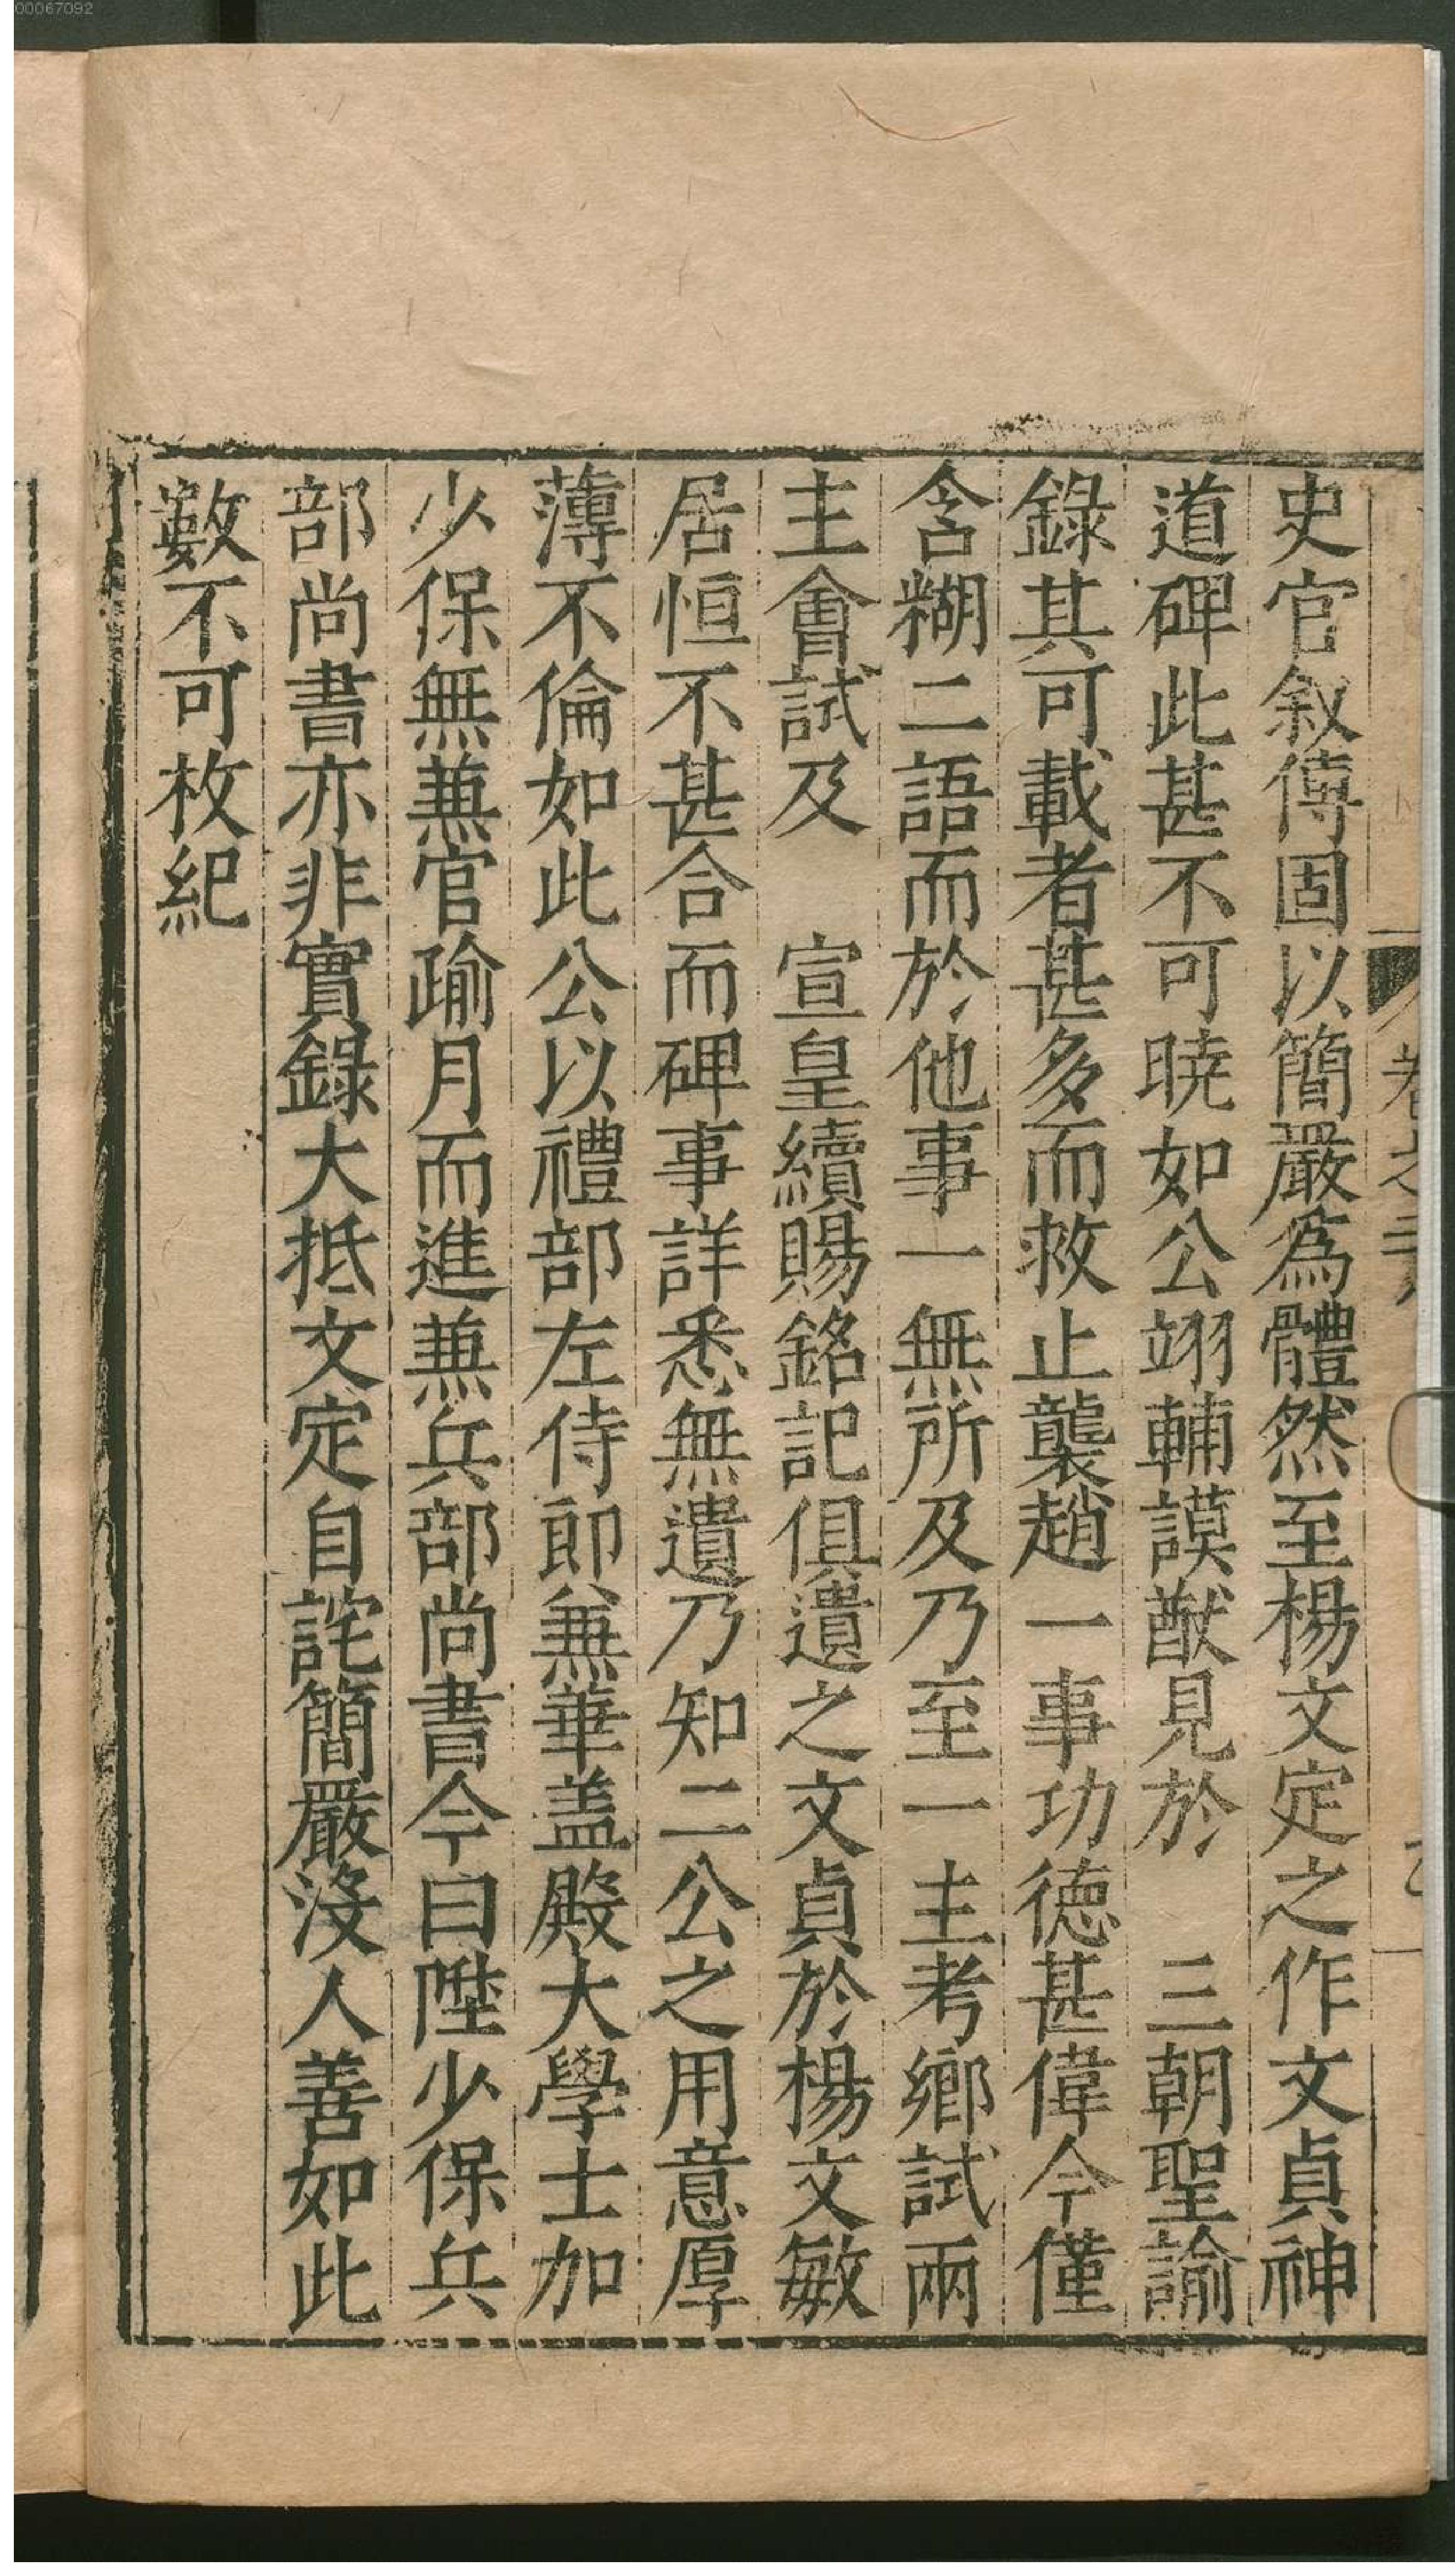 史官叙傳固以簡嚴為體然至楊文定之作文貞神
道碑此甚不可曉如公翊輔謨猷見於　三朝聖諭
錄其可載者甚多而救止襲趙一事功德甚偉今僅
含糊二語而於他事一無所及乃至一主考鄉試兩
主會試及　宣皇續賜銘記俱遺之文貞於楊文敏
居恒不甚合而碑事詳悉無遺乃知二公之用意厚
薄不倫如此公以禮部左侍郎兼華盖殿大學士加
少保無兼官踰月而進兼兵部尚書今曰陞少保兵
部尚書亦非實錄大抵文定自詫簡嚴沒人善如此
數不可枚紀
00067092